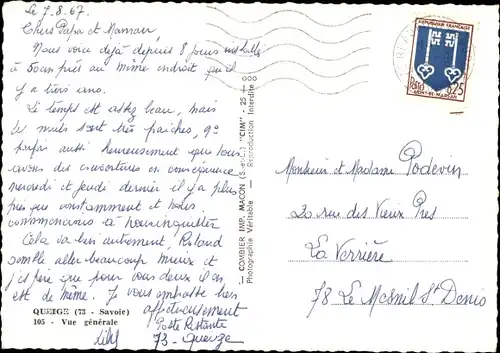 Le 7.8.67.
Chers Papa et Maman,
Nous voici déjà depuis 8 jours
à 50 m près au même endroit qu'il
y a trois ans.
Le temps est assez beau, mais
les nuits sont très fraîches, 9°
parfois aussi heureusement que nous
avons des couvertures en conséquence
vendredi et jeudi dernier il a plu
presque constamment et nous
commencions à
Cela va bien autrement, Roland
semble aller beaucoup mieux et
j'espère que pour vous deux il en
est de même. Je vous embrasse bien
affectueusement
Poste Restante
73 - Queige
QUEIGE (73 - Savoie)
105 - Vue générale
COMBIER IMP. MACON (S.-et-L.) "CIM" - 25 - 800
Photographie Véritable - Reproduction Interdite
REPUBLIQUE FRANÇAISE
Postes
0,25
MONT-DE-MARSAN
Monsieur et Madame Podevin
20 rue des Vieux Prés
La Verrière
78 Le Mesnil St Denis